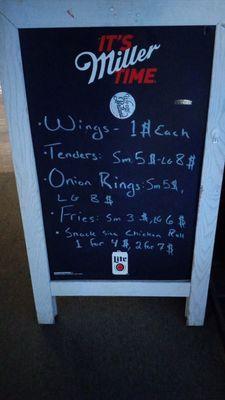 IT'S
Miller
TIME
• Wings - 1$ Each
• Tenders: Sm. 5$-LG 8$
• Onion Rings: Sm 5$,
LG 8$
• Fries: Sm 3$, LG 6$
• Snack Size Chicken Roll
1 for 4$, 2 for 7$
Lite